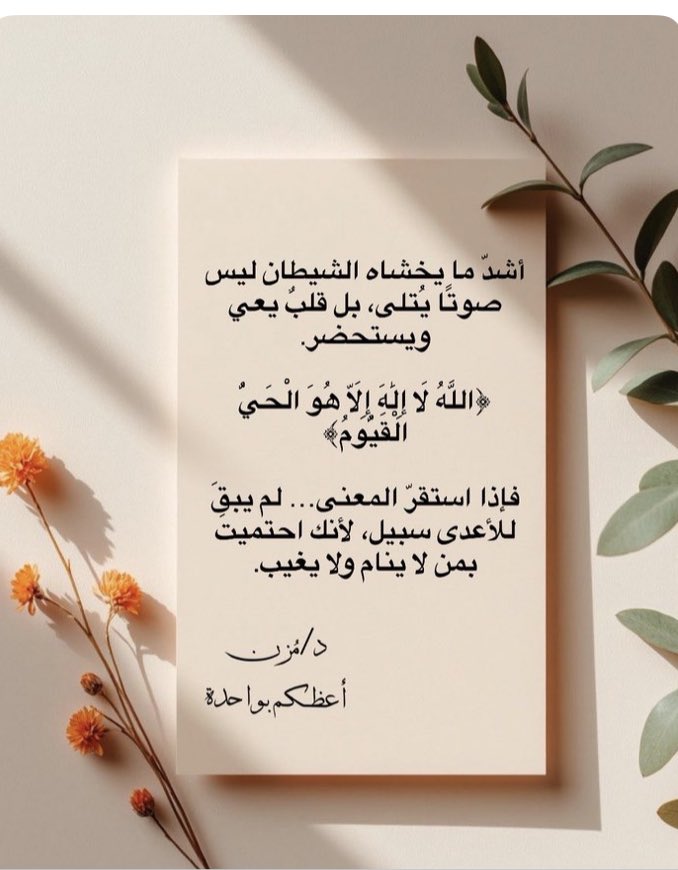 أشدّ ما يخشاه الشيطان ليس
صوتًا يُتلى، بل قلبٌ يعي
ويستحضر.
﴿اللَّهُ لَا إِلَٰهَ إِلَّا هُوَ الْحَيُّ
الْقَيُّومُ﴾
فإذا استقرّ المعنى... لم يبقَ
للأعدى سبيل، لأنك احتميت
بمن لا ينام ولا يغيب.
د/مُزن
أعظكم بواحدة